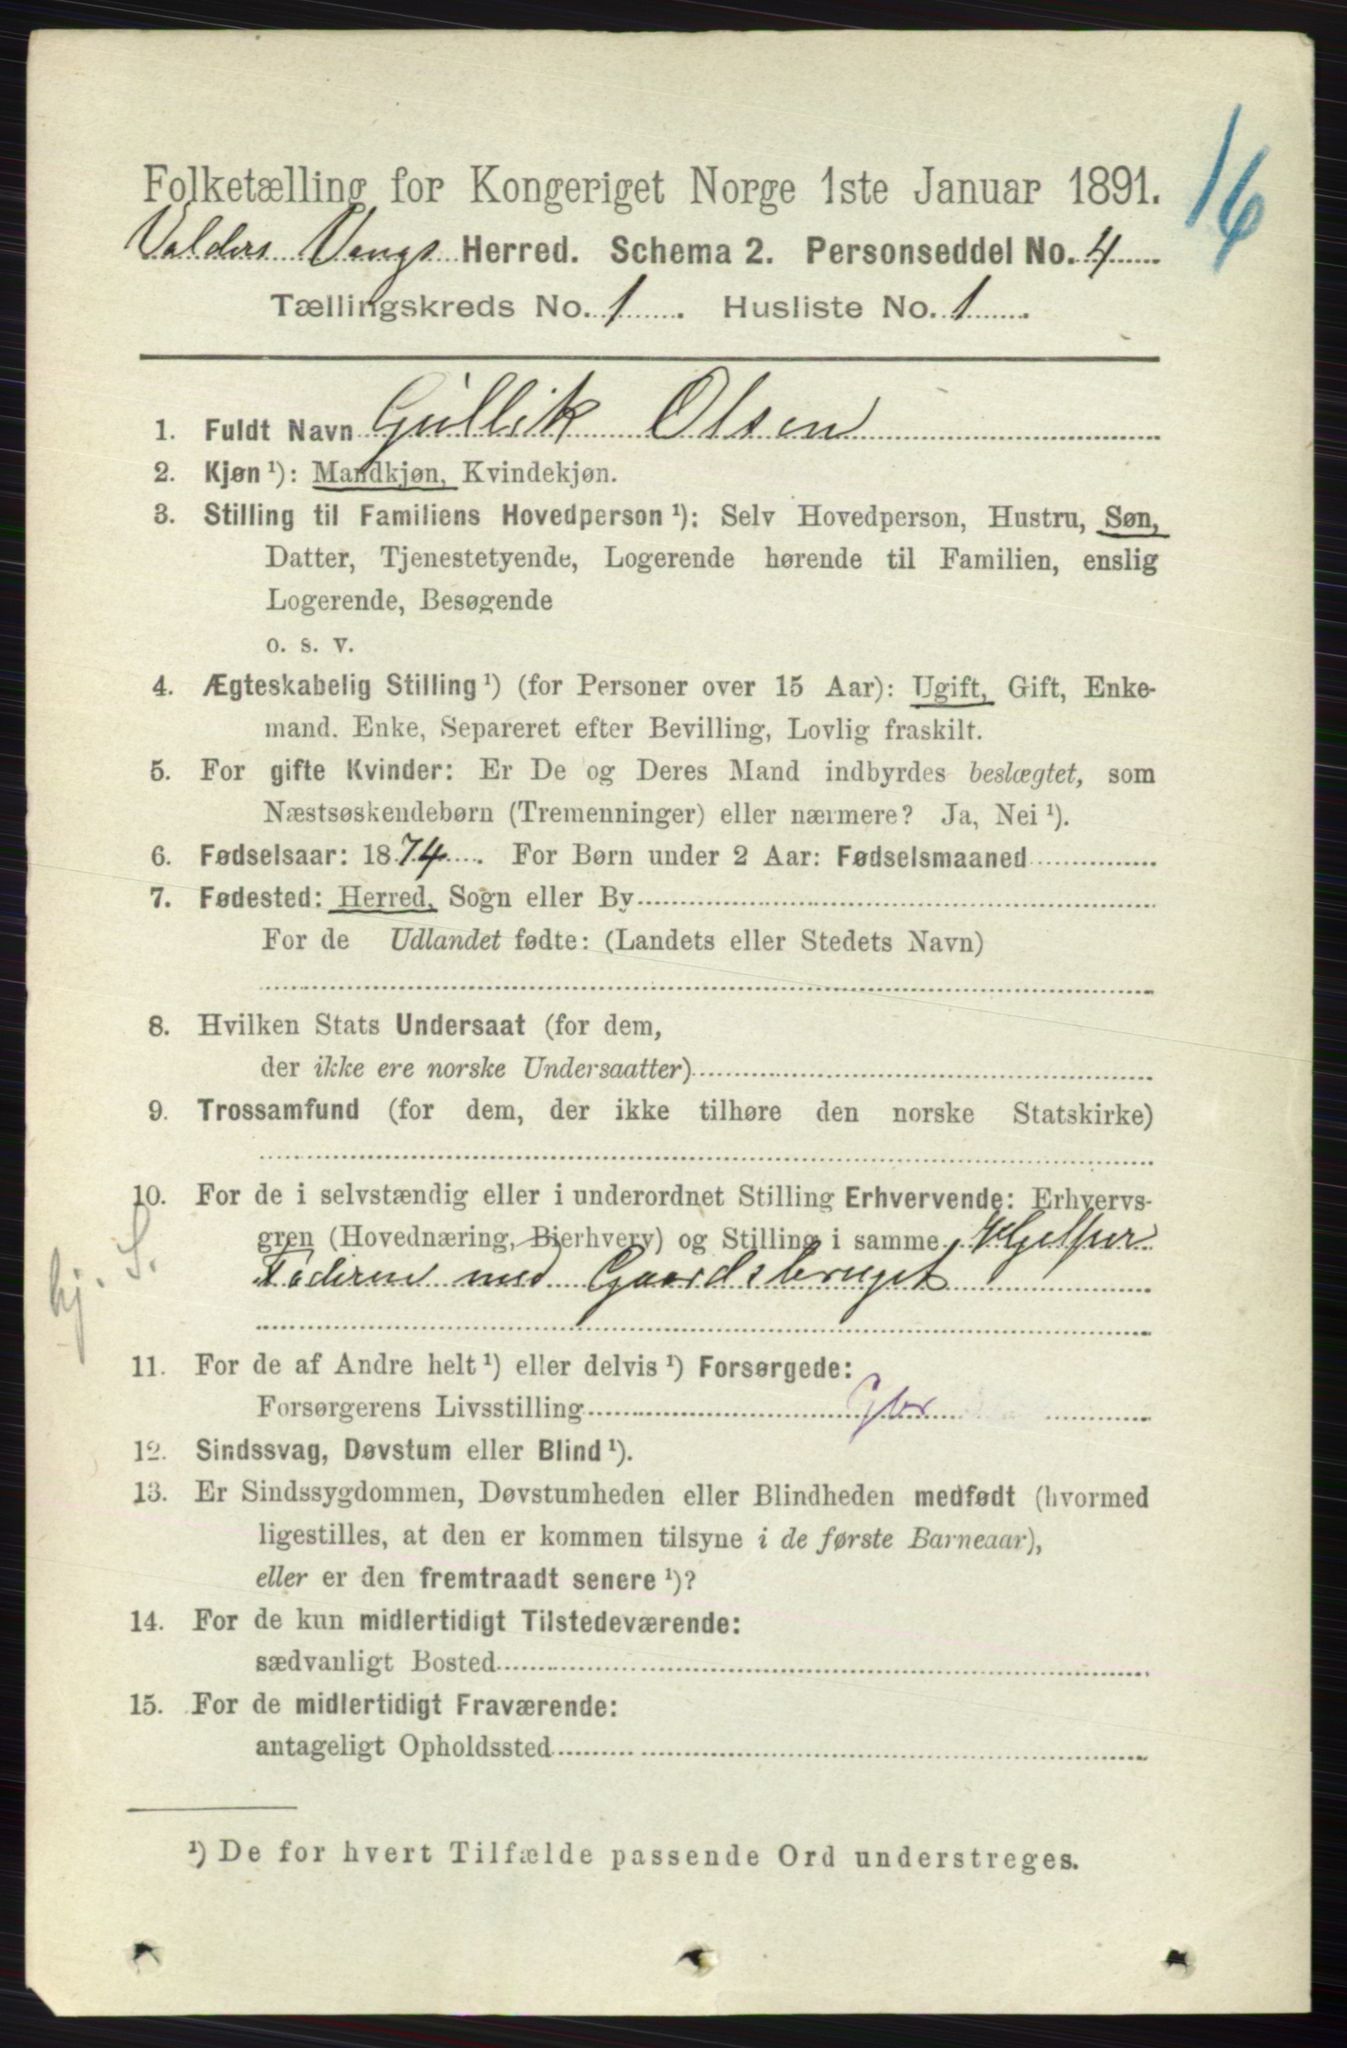 16
Folketælling for Kongeriget Norge 1ste Januar 1891.
Valders Vangs Herred. Schema 2. Personseddel No. 4
Tællingskreds No. 1. Husliste No. 1.
1. Fuldt Navn Gullik Olsen
2. Kjøn ¹): Mandkjøn, Kvindekjøn.
3. Stilling til Familiens Hovedperson ¹): Selv Hovedperson, Hustru, Søn,
Datter, Tjenestetyende, Logerende hørende til Familien, enslig
Logerende, Besøgende
o. s. v.
4. Ægteskabelig Stilling ¹) (for Personer over 15 Aar): Ugift, Gift, Enke-
mand. Enke, Separeret efter Bevilling, Lovlig fraskilt.
5. For gifte Kvinder: Er De og Deres Mand indbyrdes beslægtet, som
Næstsøskendebørn (Tremenninger) eller nærmere? Ja, Nei ¹).
6. Fødselsaar: 1874. For Børn under 2 Aar: Fødselsmaaned
7. Fødested: Herred, Sogn eller By
For de Udlandet fødte: (Landets eller Stedets Navn)
8. Hvilken Stats Undersaat (for dem,
der ikke ere norske Undersaatter)
9. Trossamfund (for dem, der ikke tilhøre den norske Statskirke)
10. For de i selvstændig eller i underordnet Stilling Erhvervende: Erhvervs-
gren (Hovednæring, Bierhverv) og Stilling i samme Hjelper
Faderen med Gaardsbruget
hj. S.
11. For de af Andre helt ¹) eller delvis ¹) Forsørgede:
Forsørgerens Livsstilling Gbr
12. Sindssvag, Døvstum eller Blind ¹).
13. Er Sindssygdommen, Døvstumheden eller Blindheden medfødt (hvormed
ligestilles, at den er kommen tilsyne i de første Barneaar),
eller er den fremtraadt senere ¹)?
14. For de kun midlertidigt Tilstedeværende:
sædvanligt Bosted
15. For de midlertidigt Fraværende:
antageligt Opholdssted
¹) De for hvert Tilfælde passende Ord understreges.